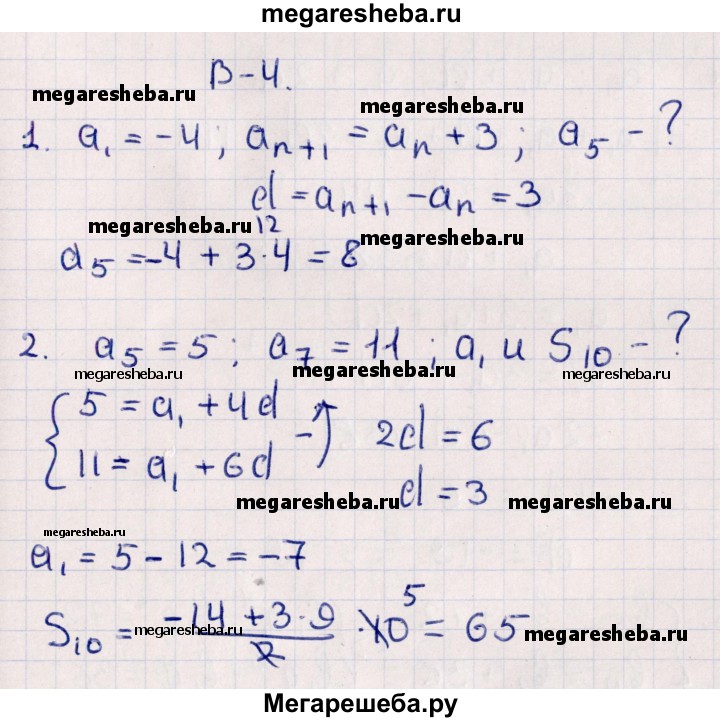 megaresheba.ru
В-4.
megaresheba.ru
megaresheba.ru
1. a₁ = -4 ; aₙ₊₁ = aₙ + 3 ; a₅ - ?
d = aₙ₊₁ - aₙ = 3
megaresheba.ru
12
megaresheba.ru
a₅ = -4 + 3·4 = 8
2. a₅ = 5 ; a₇ = 11 ; a₁ и S₁₀ - ?
megaresheba.ru
megaresheba.ru
megaresheba.ru
{ 5 = a₁ + 4d
11 = a₁ + 6d
- ↑ 2d = 6
d = 3
megaresheba.ru
megaresheba.ru
megaresheba.ru
a₁ = 5 - 12 = -7
S₁₀ = (-14 + 3·9)/2 · 10 ⁵ = 65
megaresheba.ru
megaresheba.ru
megaresheba.ru
Мегарешеба.ру